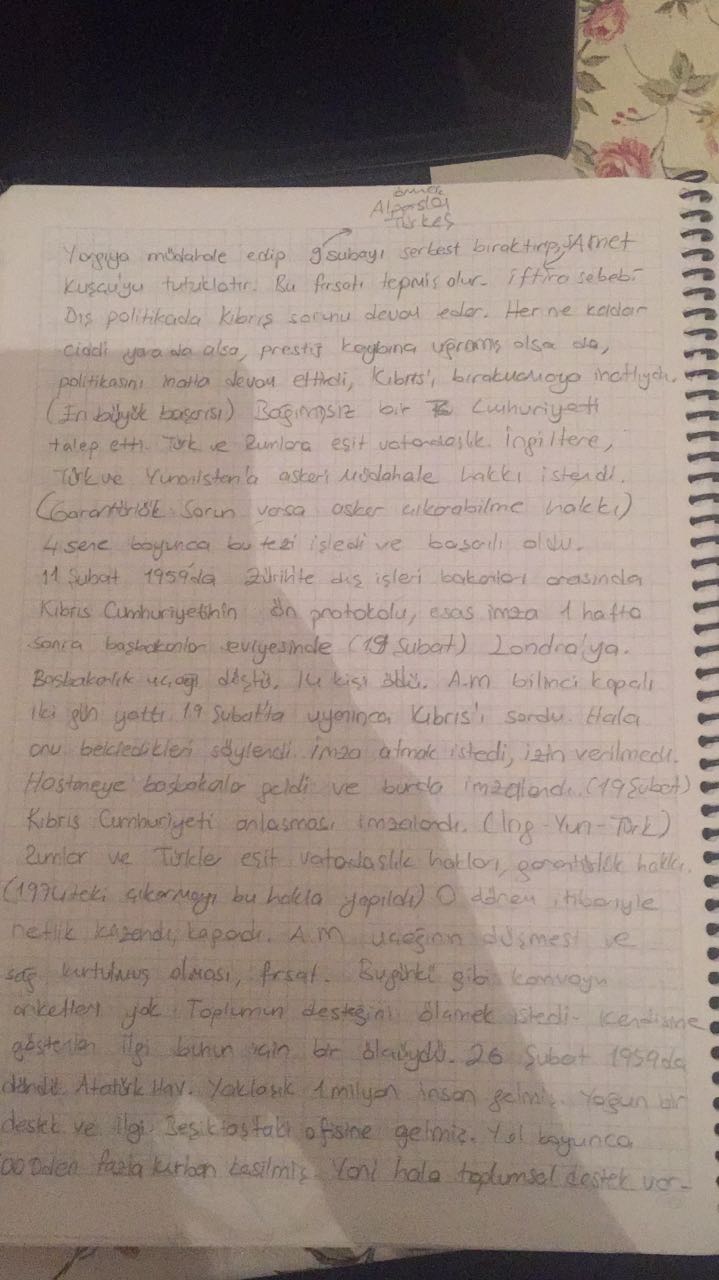 örnek
Alparslan
Türkeş
Yargıya müdahale edip 9 subayı serbest bıraktırıp, SAmet
Kuşçu'yu tutuklatır. Bu fırsatı tepmiş olur. iftira sebebi
Dış politikada Kıbrıs sorunu devam eder. Her ne kadar
ciddi yara da alsa, prestij kaybına uğramış olsa da,
politikasını inatla devam ettirdi, Kıbrıs'ı bırakmamaya inatlıydı.
(En büyük başarısı) Bağımsız bir Cumhuriyeti
talep etti. Türk ve Rumlara eşit vatandaşlık. İngiltere,
Türk ve Yunanistan'a askeri müdahale hakkı istendi.
(Garantörlük Sorun varsa asker çıkarabilme hakkı)
4 sene boyunca bu tezi işledi ve başarılı oldu.
11 Şubat 1959'da Zürih'te dış işleri bakanları arasında
Kıbrıs Cumhuriyetinin ön protokolu, esas imza 1 hafta
sonra başbakanlar seviyesinde (19 Şubat) Londra'ya.
Başbakanlık uçağı düştü. 14 kişi öldü. A.M bilinci kapalı
iki gün yattı 19 Şubat'ta uyanınca Kıbrıs'ı sordu. Hala
onu bekledikleri söylendi. imza atmak istedi, izin verilmedi.
Hastaneye başbakanlar geldi ve burda imzalandı. (19 Şubat)
Kıbrıs Cumhuriyeti anlaşması imzalandı. (İng-Yun-Türk)
Rumlar ve Türkler eşit vatadaşlık hakları, garantörlük hakkı.
(1974'teki çıkarmayı bu hakla yapıldı) O dönem itibariyle
netlik kazandı, kapandı. A.M uçağının düşmesi ve
sağ kurtulmuş olması, fırsat. Bugünkü gibi kamuoyu
anketleri yok. Toplumun desteğini ölçmek istedi. Kendisine
gösterilen ilgi bunun için bir ölçüydü. 26 Şubat 1959'da
döndü Atatürk Hav. Yaklaşık 1 milyon insan gelmiş. Yoğun bir
destek ve ilgi Beşiktaştaki ofisine gelmiş. Yol boyunca
fazla kurban kesilmiş. Yani hala toplumsal destek var.